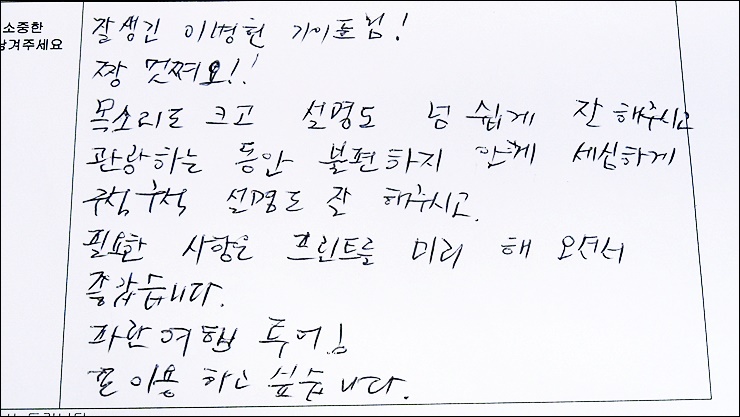 소중한
남겨주세요
잘생긴 이병헌 가이드님!
짱 멋져요!!
목소리도 크고 설명도 넘 쉽게 잘 해주시고
관광하는 동안 불편하지 않게 세심하게
구석구석 설명도 잘 해주시고.
필요한 사항은 프린트를 미리 해 오셔서
좋았습니다.
파란여행 투어
또 이용 하고 싶습니다.